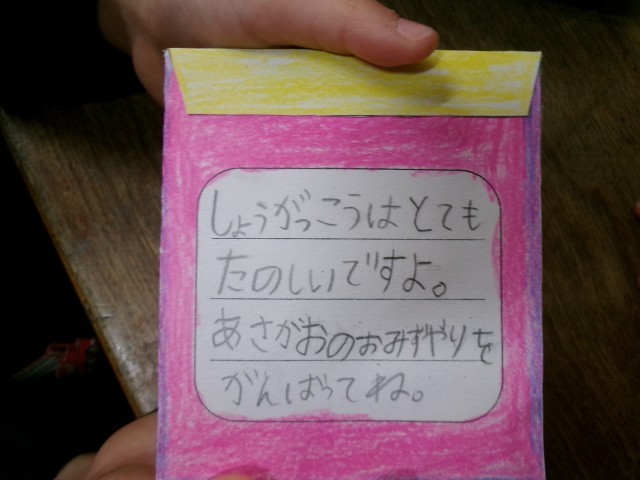 しょうがっこうはとても
たのしいですよ。
あさがおのおみずやりを
がんばってね。